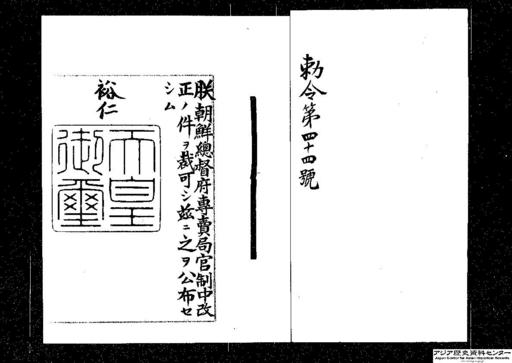 勅令第四十四號
朕朝鮮總督府專賣局官制中改
正ノ件ヲ裁可シ茲ニ之ヲ公布セ
シム
裕仁
天皇
御璽
アジア歴史資料センター
Japan Center for Asian Historical Records